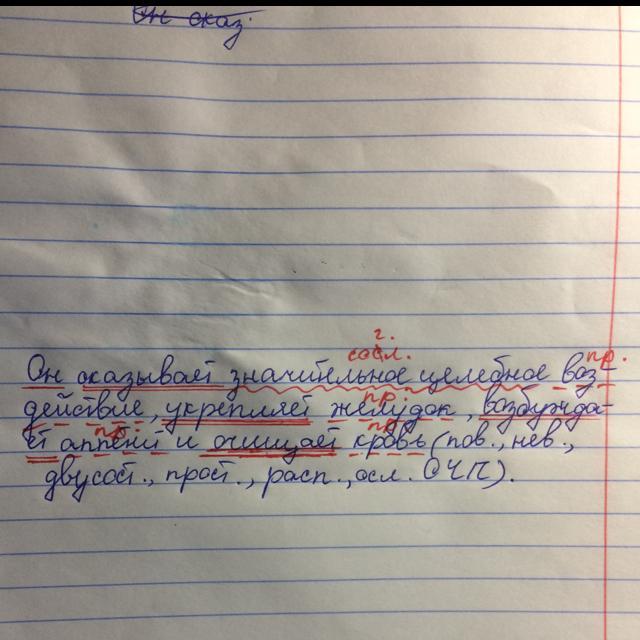 Он сказ.
г.
сосл. пр.
Он оказывает значительное целебное воз-
пр.
действие, укрепляет желудок, возбужда-
пр. пр.
ет аппетит и очищает кровь (пов., нев.,
двусост., прост., расп., осл. ОЧП).